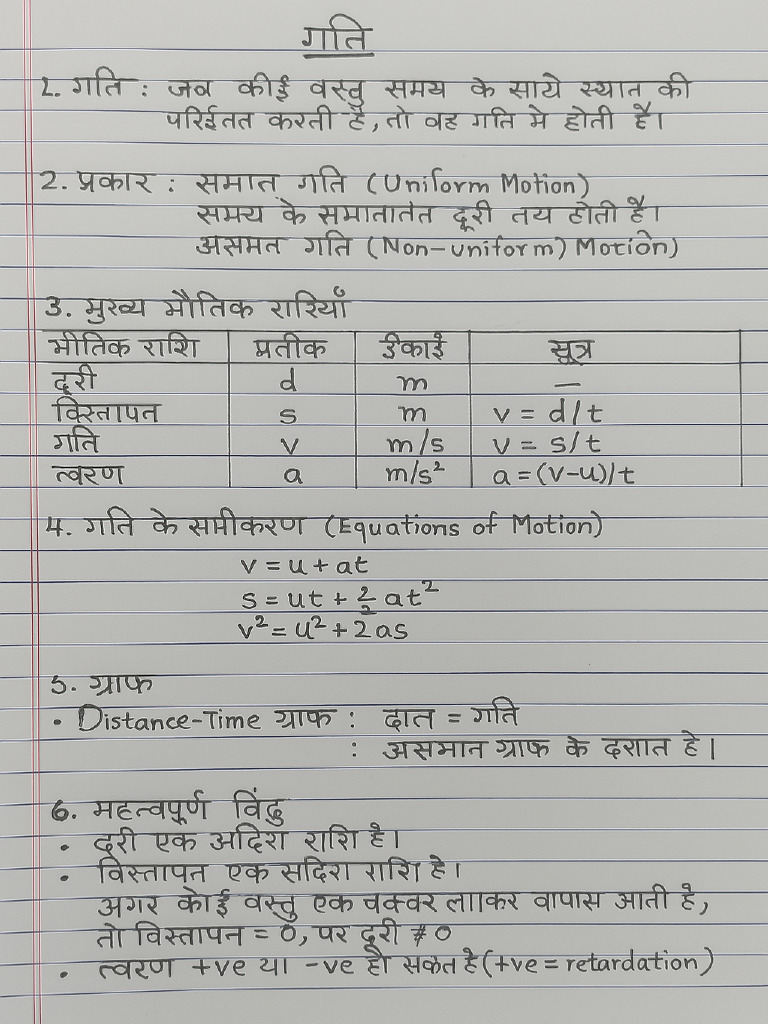 गति
1. गति : जव कीई वस्तु समय के साये स्यात की
परिईतत करती है, तो वह गति मे होती है।
2. प्रकार : समात गति (Uniform Motion)
समय के समातातंत दूरी तय होती है।
असमत गति (Non-uniform) Motion)
3. मुख्य मौतिक रारियाँ
मीतिक राशि प्रतीक ईकाई सूत्र
दूरी d m —
विस्तापत s m v = d/t
गति v m/s v = s/t
त्वरण a m/s² a = (v-u)/t
4. गति के समीकरण (Equations of Motion)
v = u + at
s = ut + 2/2 at²
v² = u² + 2as
5. ग्राफ
• Distance-Time ग्राफ : दात = गति
: असमात ग्राफ के दशात हे।
6. महत्वपूर्ण विंदु
• दूरी एक अदिश राशि है।
• विस्तापत एक सदिश राशि है।
अगर कोई वस्तु एक वक्वर लााकर वापास आती है,
तो विस्तापन = 0, पर दूरी ≠ 0
• त्वरण +ve या -ve हो सकत है (+ve = retardation)